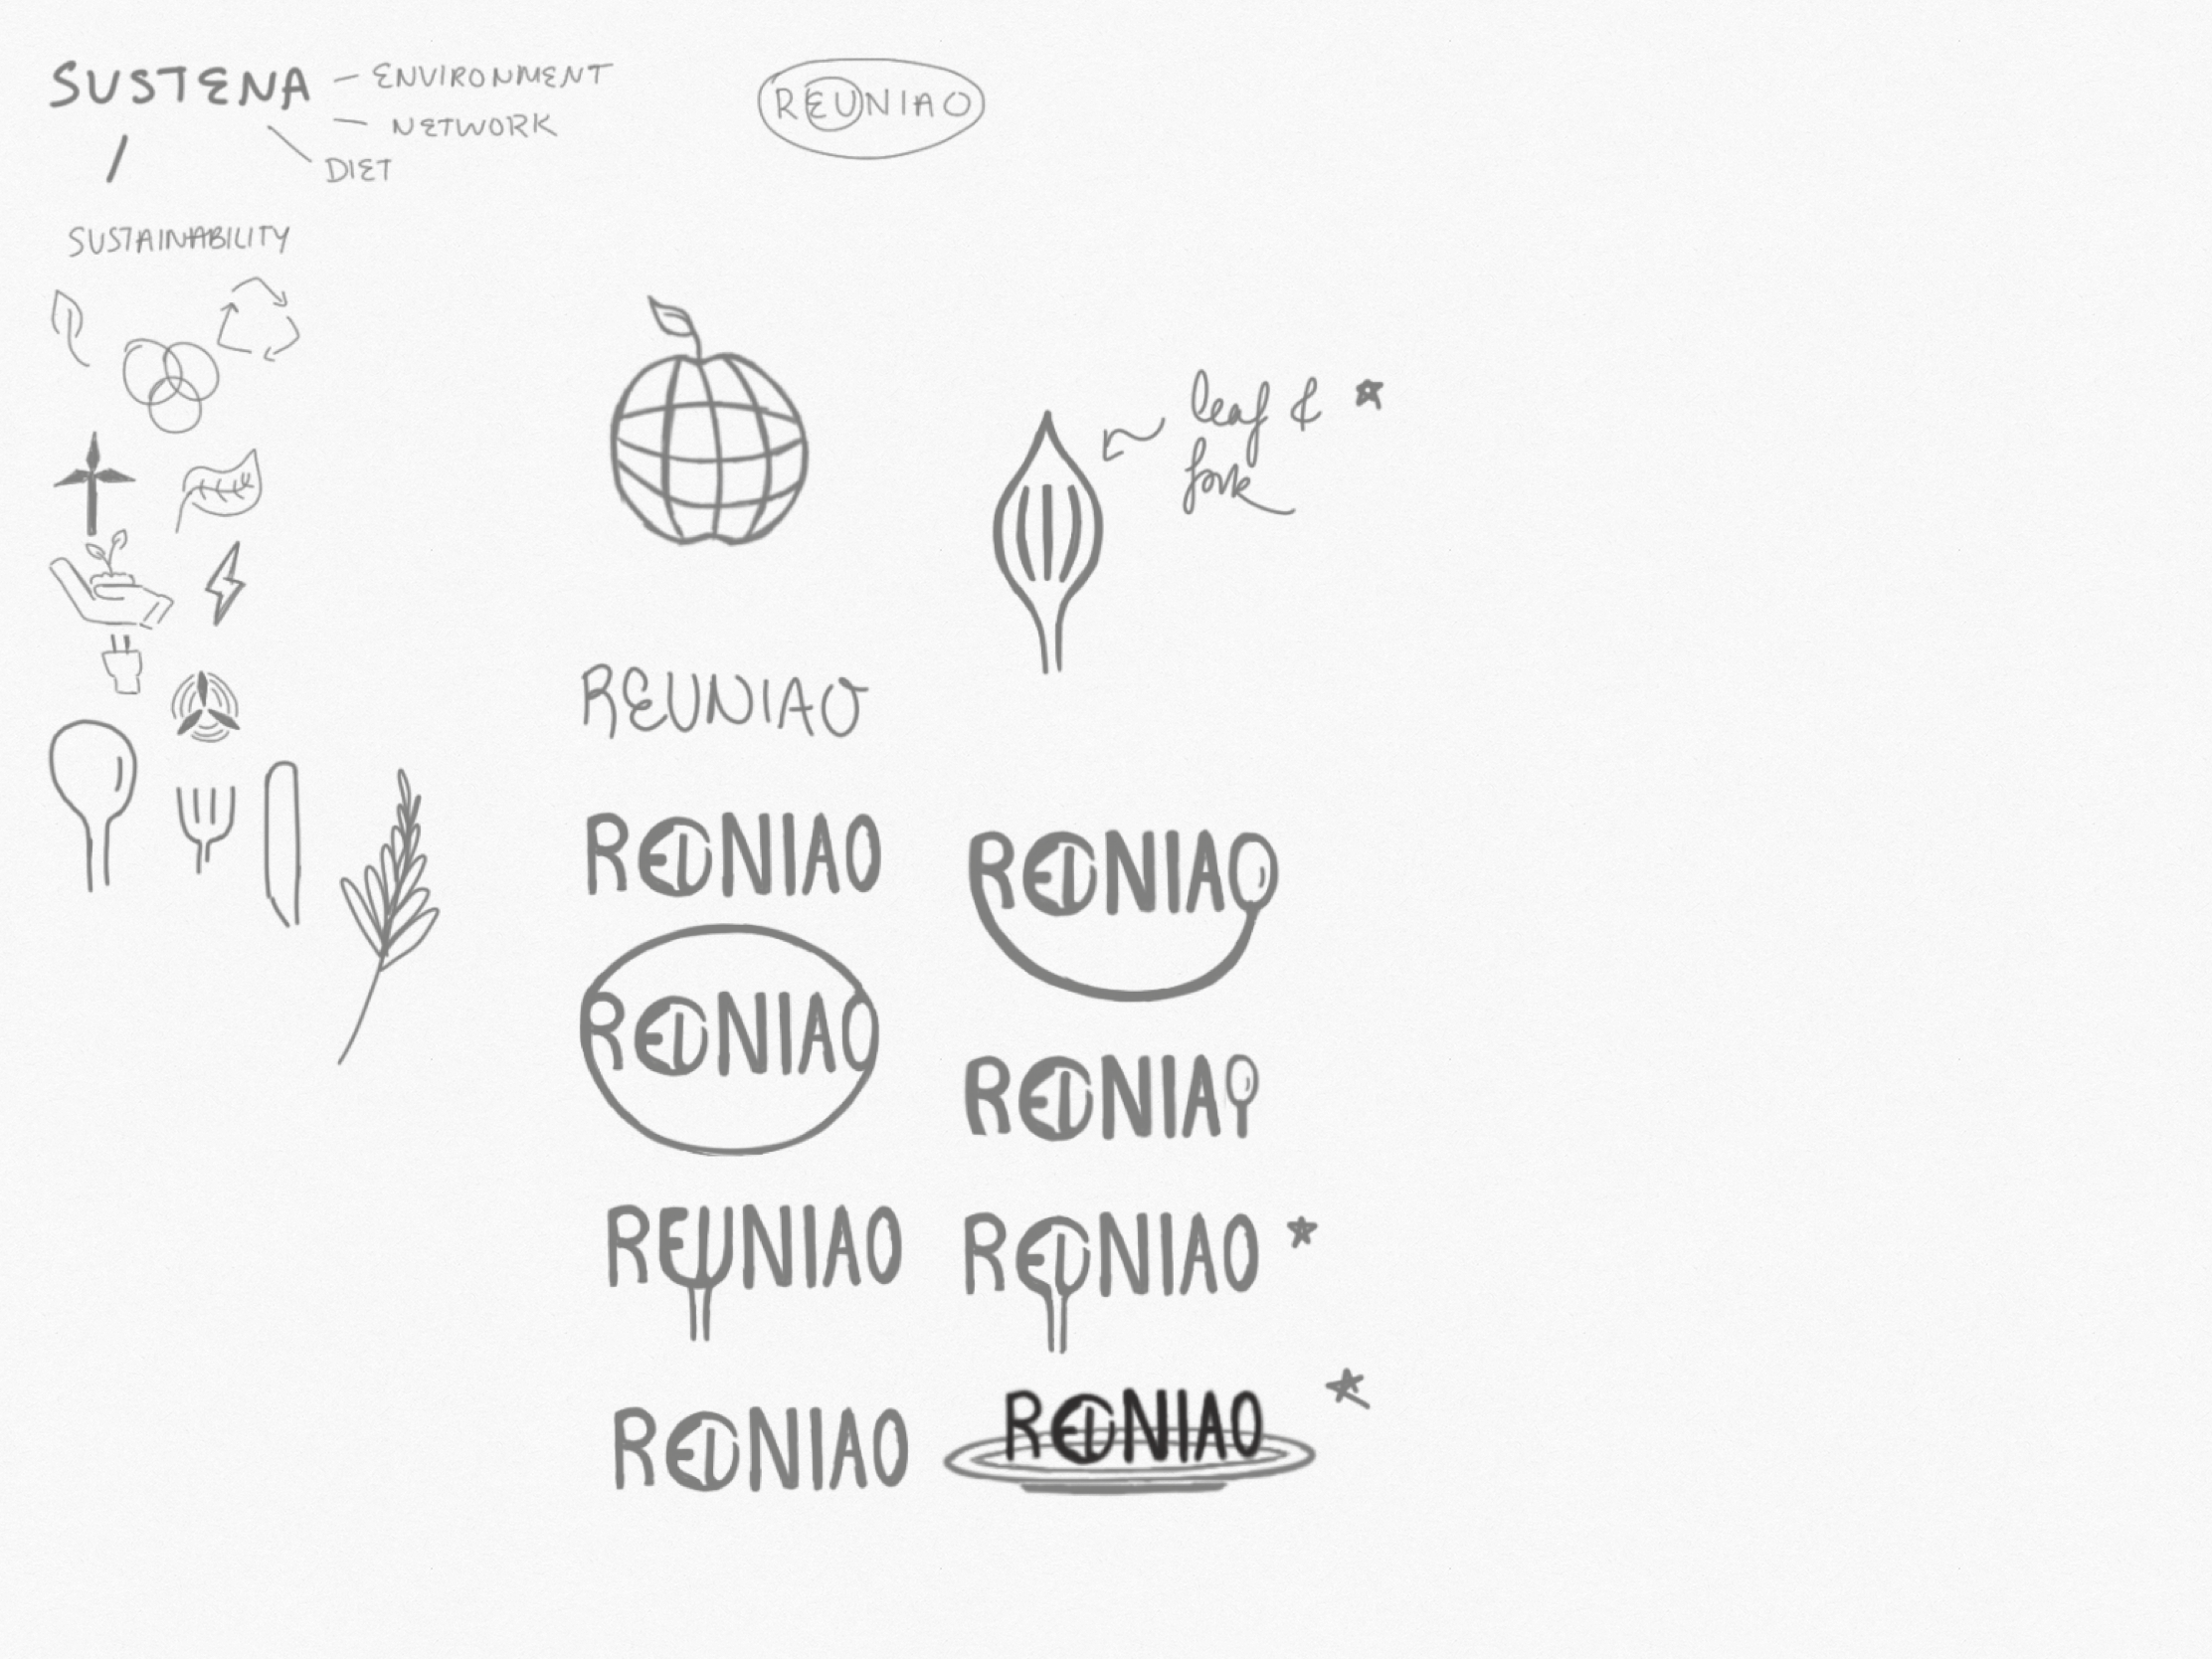 SUSTENA
ENVIRONMENT
NETWORK
DIET
SUSTAINABILITY
REUNIAO
leaf &
fork
REUNIAO
REUNIAO
REUNIAO
REUNIAO
REUNIAO
REUNIAO
REUNIAO
REUNIAO
REUNIAO